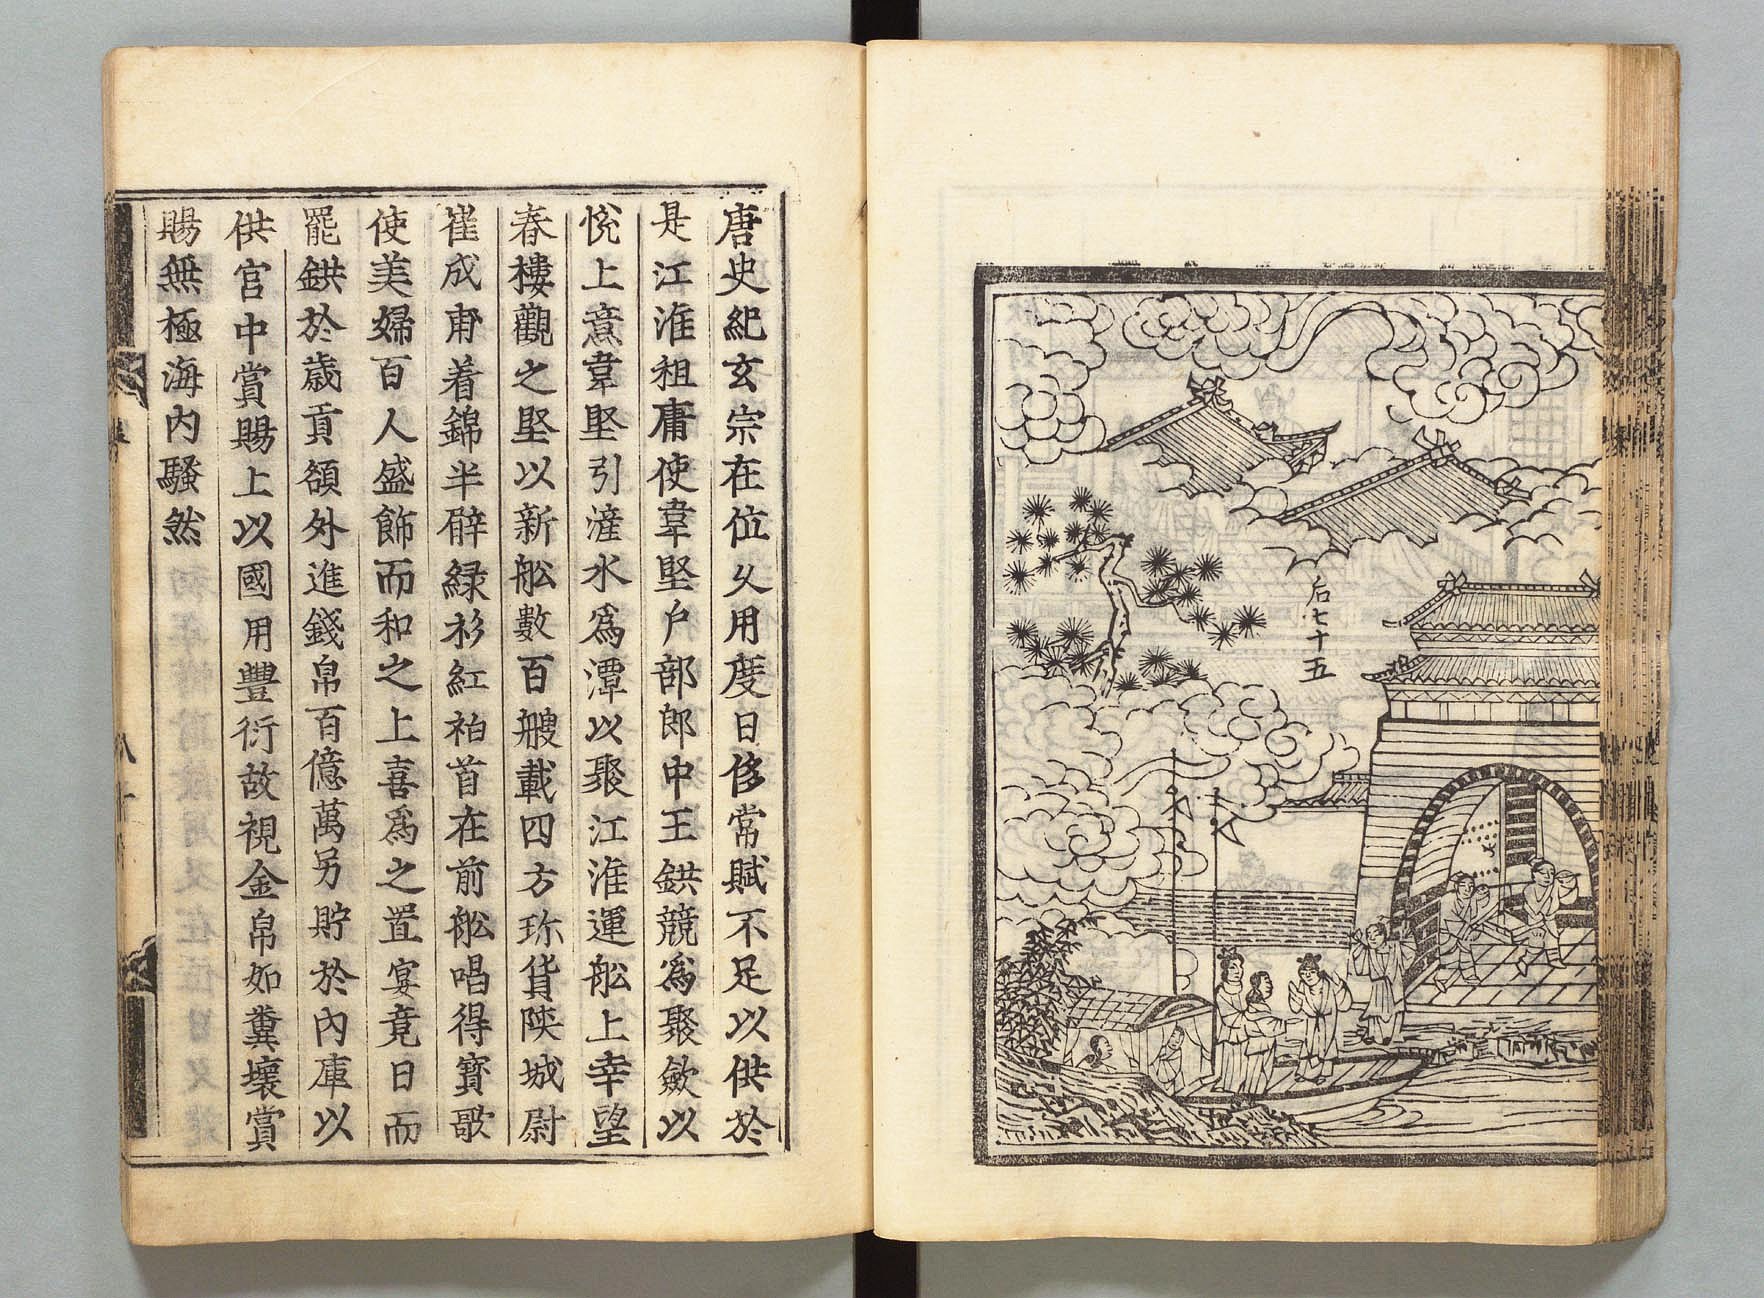 后七十五
唐史紀玄宗在位久用度日侈常賦不足以供於
是江淮租庸使韋堅戶部郎中王鉷競爲聚歛以
悅上意韋堅引滻水爲潭以聚江淮運舩上幸望
春樓觀之堅以新舩數百艘載四方珎貨陝城尉
崔成甫着錦半臂緑衫紅袙首在前舩唱得寶歌
使美婦百人盛飾而和之上喜爲之置宴竟日而
罷鉷於歲貢額外進錢帛百億萬另貯於內庫以
供宫中賞賜上以國用豐衍故視金帛如糞壤賞
賜無極海內騷然